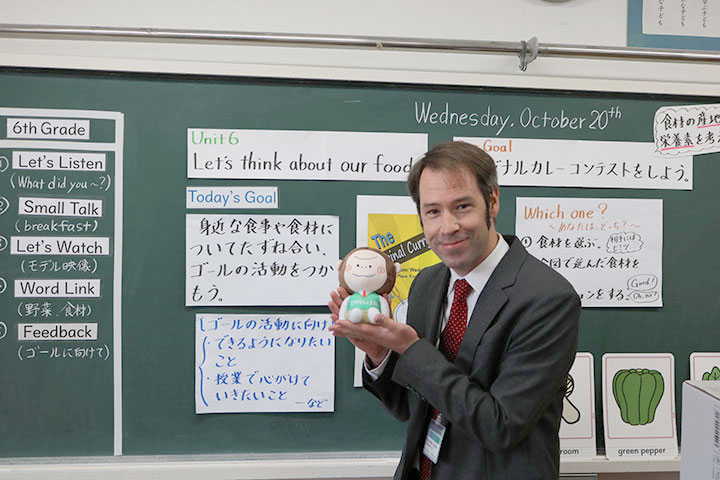 Wednesday, October 20th
食材の産地
栄養素を考
6th Grade
Let's Listen
(What did you〜?)
Small Talk
(breakfast)
Let's Watch
(モデル映像)
Word Link
(野菜、食材)
Feedback
(ゴールに向けて)
Unit 6
Let's think about our food
Goal
ナルカレーコンテストをしよう。
Today's Goal
身近な食事や食材に
ついてたずね合い、
ゴールの活動をつか
もう。
ゴールの活動に向け
・できるようになりたい
こと
・授業で心がけて
いきたいこと
―など
The
inal Curr
Which one?
〜あなたは、どっち?〜
① 食材を選ぶ。
相手には
ヒミツ
今回で選んだ食材を
ションをする。
Good!
Oh, no!
ENGLISH
room
green pepper